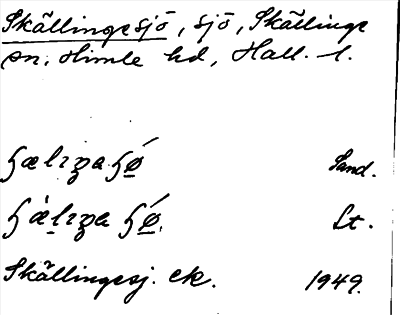 Skällingesjö, sjö, Skällinge
sn, Himle hd, Hall. l.
Sand.
Lt.
Skällingesj. ek. 1949.